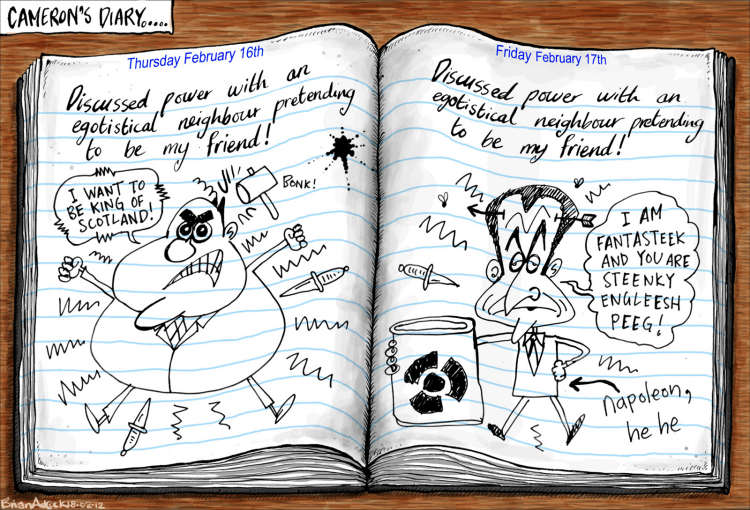 CAMERON"S DIARY.....
Thursday February 16th
Discussed power with an
egotistical neighbour pretending
to be my friend!
I WANT TO
BE KING OF
SCOTLAND!
BONK!
Friday February 17th
Discussed power with an
egotistical neighbour pretending
to be my friend!
I AM
FANTASTEEK
AND YOU ARE
STEENKY
ENGLEESH
PEEG!
napoleon,
he he
Brian Adcock 18-02-12